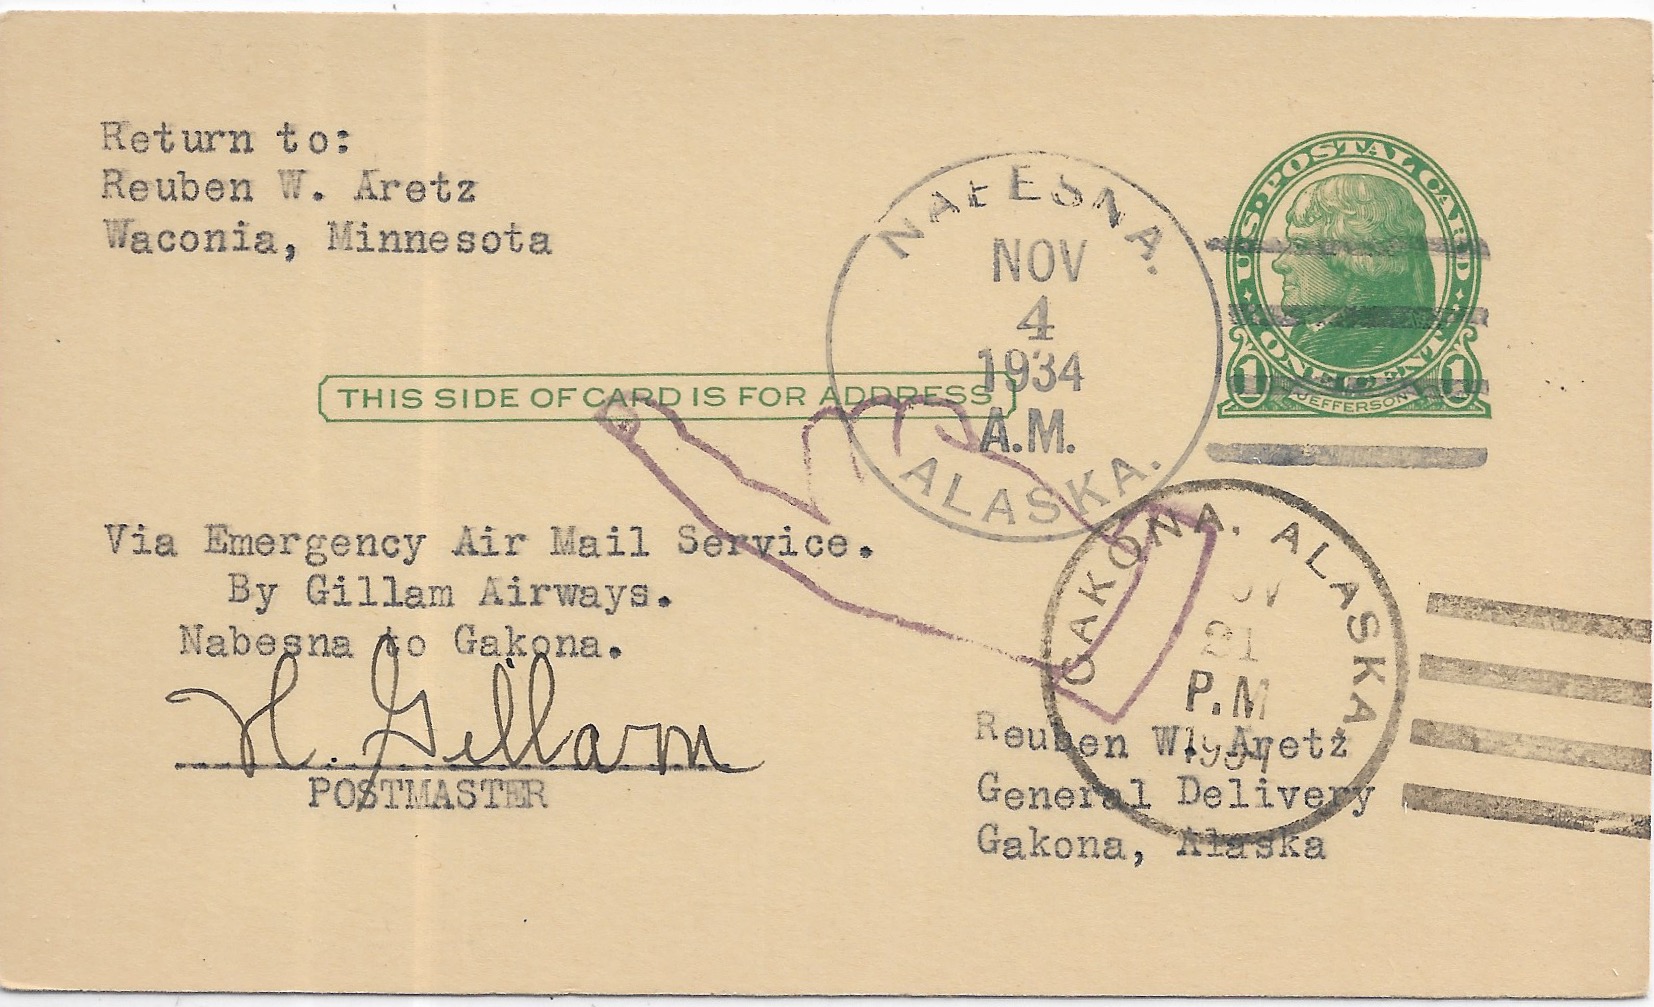 Return to:
Reuben W. Aretz
Waconia, Minnesota
U.S. POSTAL CARD
ONE CENT
1 1
JEFFERSON
NABESNA.
NOV
4
1934
A.M.
ALASKA.
THIS SIDE OF CARD IS FOR ADDRESS
Via Emergency Air Mail Service.
By Gillam Airways.
Nabesna to Gakona.
H. Gillam
POSTMASTER
GAKONA. ALASKA
NOV
21
P.M
1934
Reuben W. Aretz
General Delivery
Gakona, Alaska